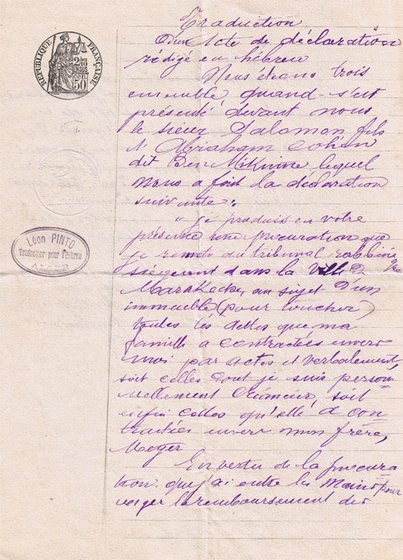 Traduction
d'un acte de déclaration
rédigé en hébreu
Nous étions trois
ensemble quand s'est
présenté devant nous
le sieur Salomon fils
d'Abraham Cohen
dit Ben lequel
nous a fait la déclaration
suivante :
"je produis en votre
présence une procuration que
je du tribunal rabbinique
siégeant dans la ville de
Marakech, au sujet d'un
immeuble (pour toucher)
toutes les dettes que ma
famille a contractées envers
moi par actes et verbalement,
soit celles dont je suis person-
nellement créancier, soit
enfin celles qu'elle a con-
tractées envers mon frère,
Meyer
En vertu de la procura-
tion que j'ai entre les mains pour
exiger le remboursement des
RÉPUBLIQUE FRANÇAISE
Léon PINTO
Traducteur pour l'hébreu
ALGER